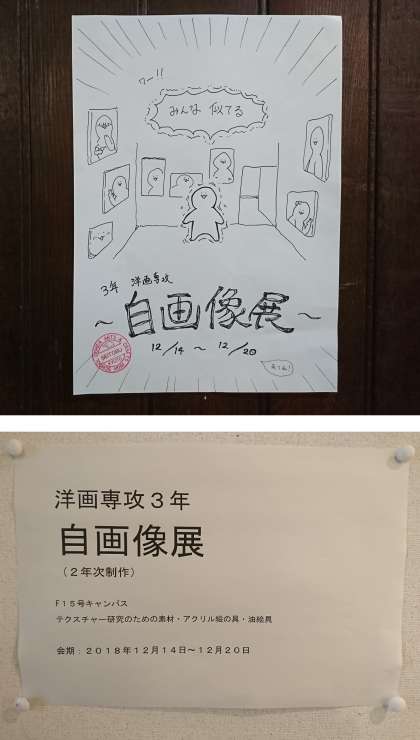 ワー!!
みんな 似てる
3年 洋画専攻
～自画像展～
12/14 ～ 12/20
洋画専攻３年
自画像展
（２年次制作）
F１５号キャンバス
テクスチャー研究のための素材・アクリル絵の具・油絵具
会期：２０１８年１２月１４日～１２月２０日